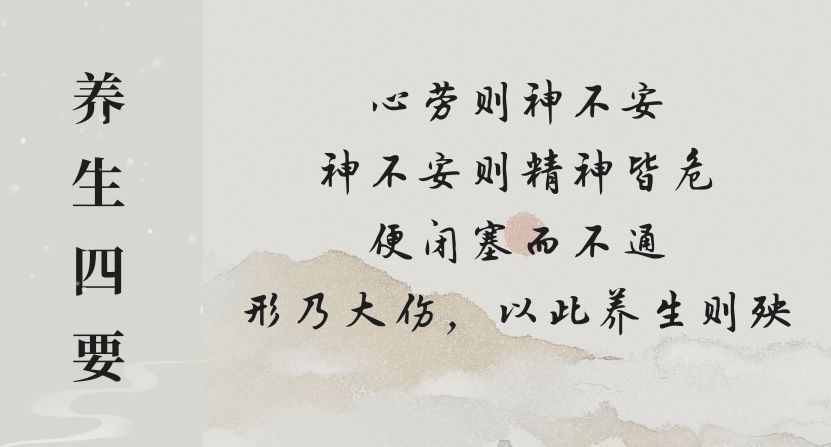 养生四要
心劳则神不安
神不安则精神皆危
便闭塞而不通
形乃大伤，以此养生则殃